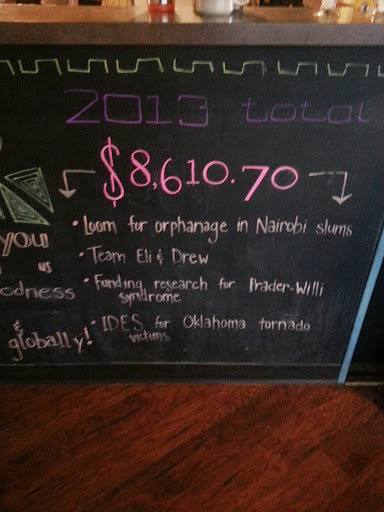 2013 total
$8,610.70
• Loom for orphanage in Nairobi slums
• Team Eli & Drew
• Funding research for Prader-Willi
syndrome
• IDES for Oklahoma tornado
victims
you
us
odness
&
globally!